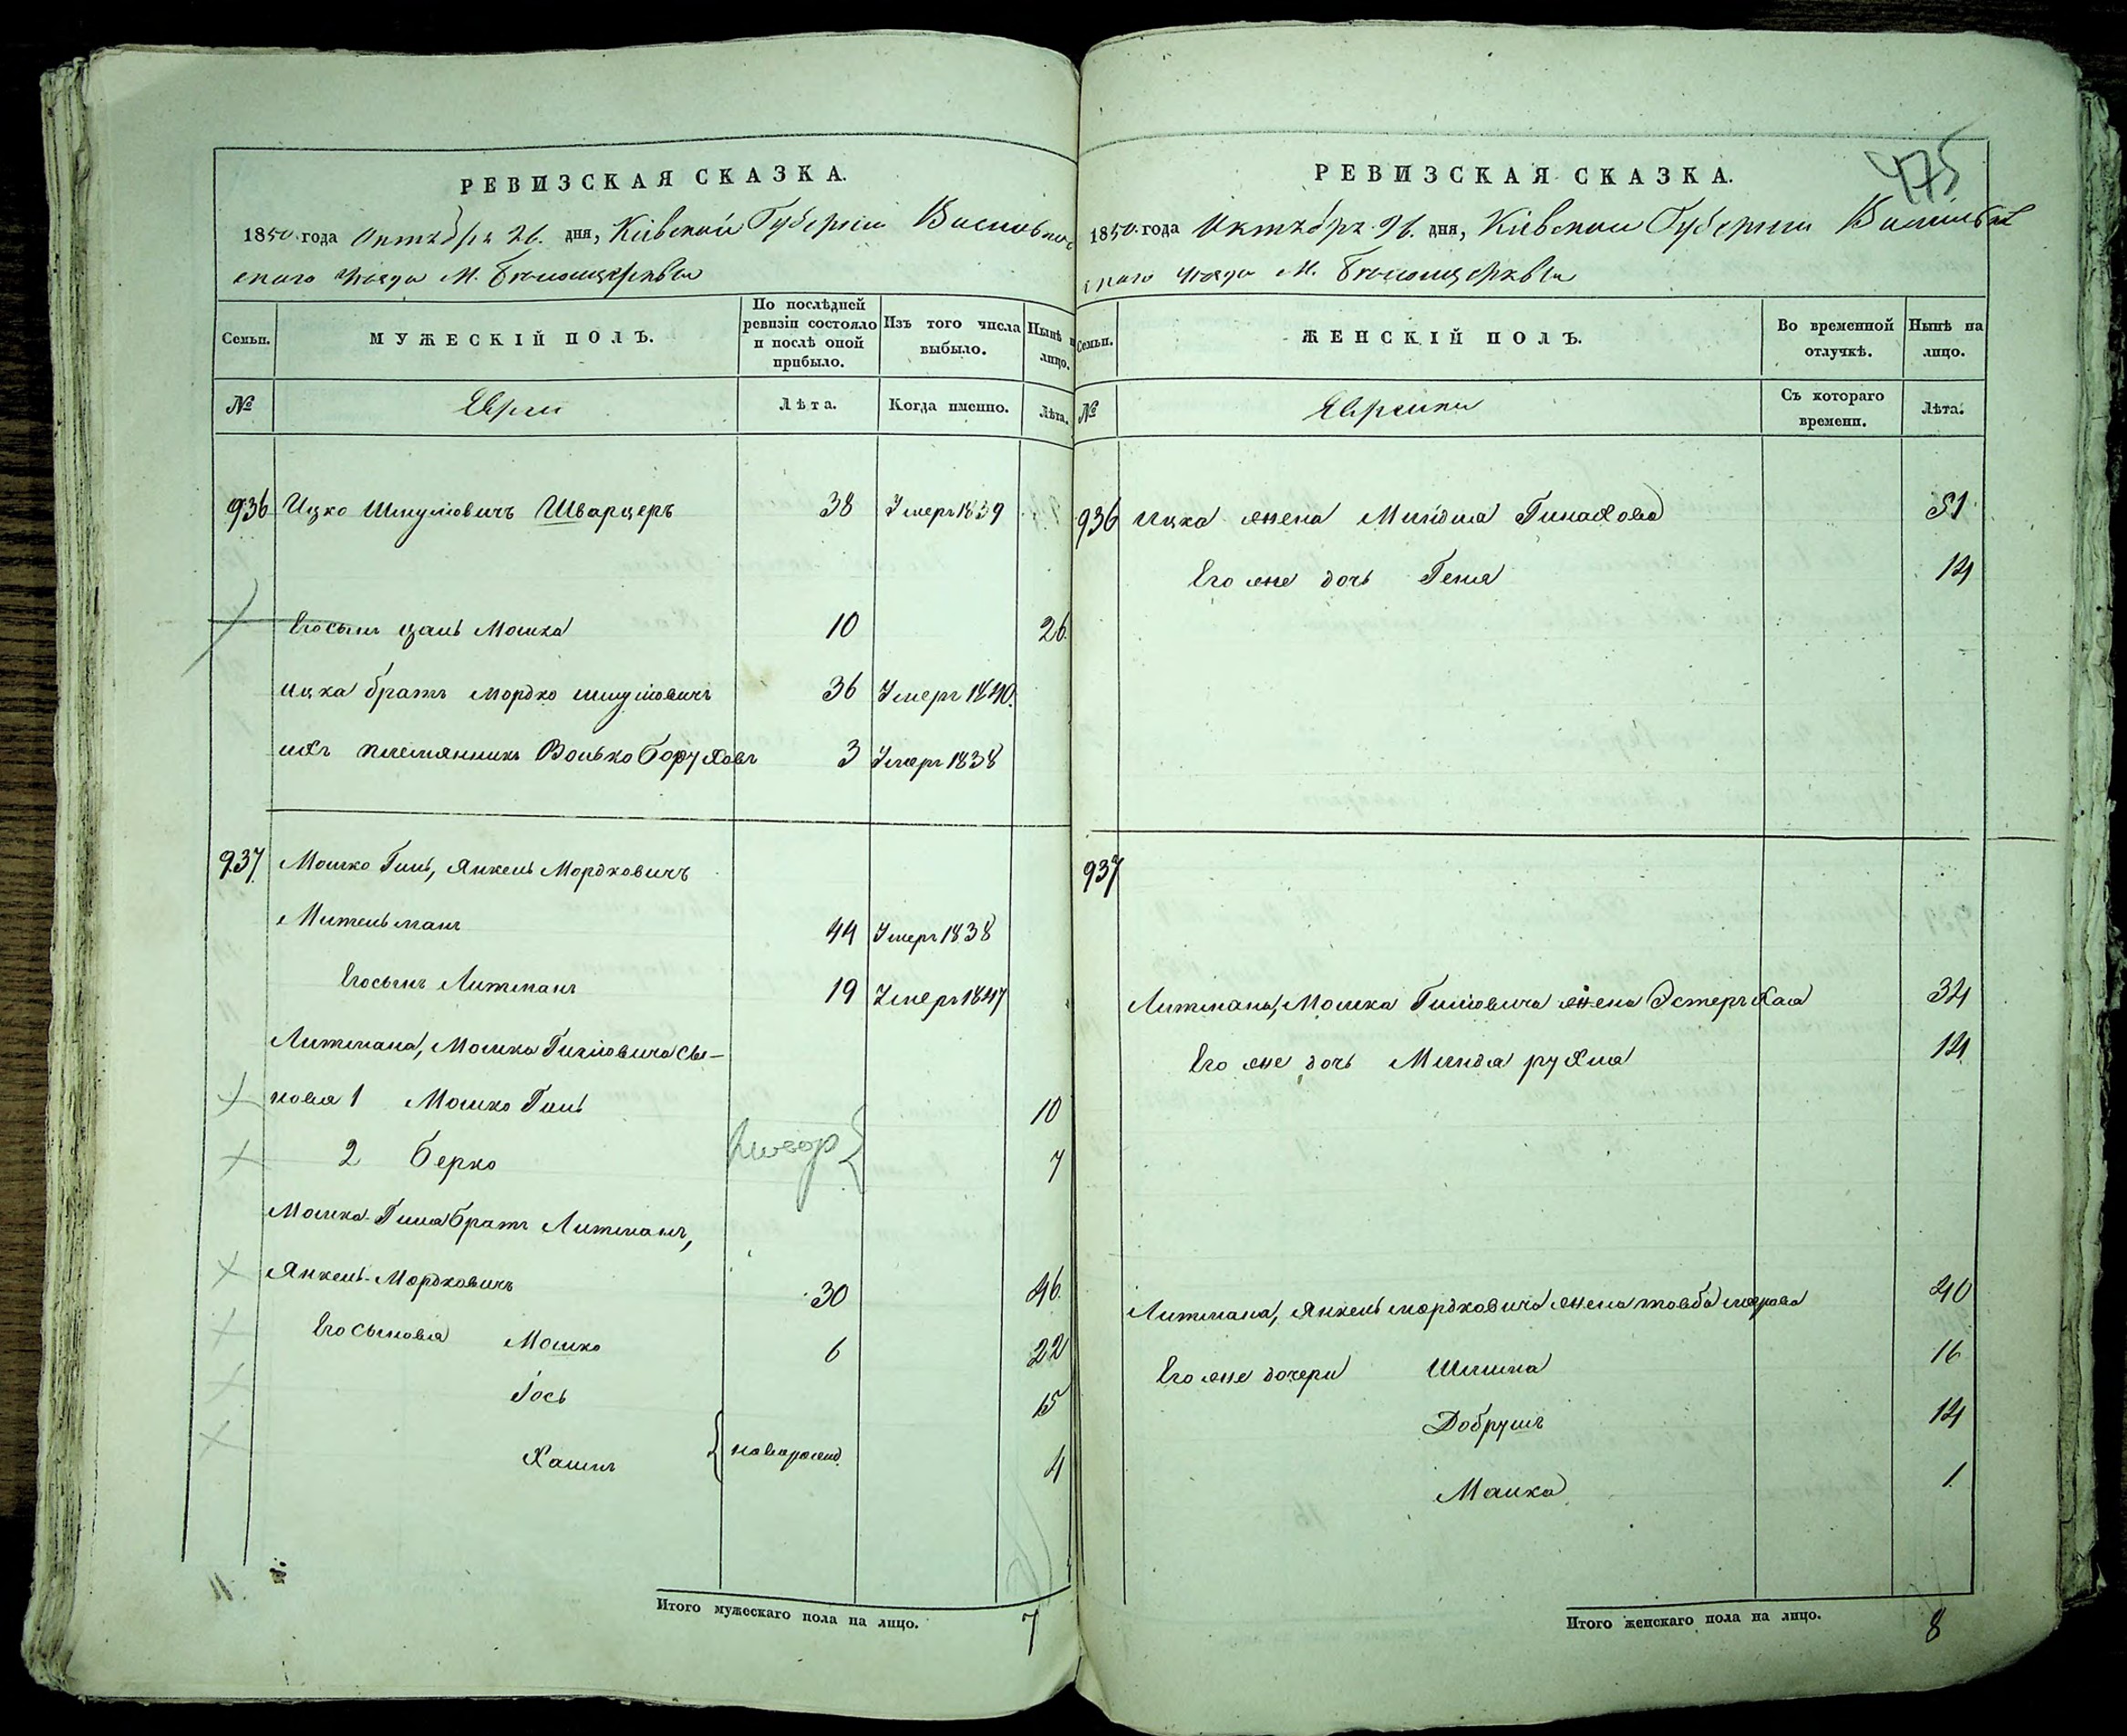 РЕВИЗСКАЯ СКАЗКА.
1850. года Октября 26. дня, Кіевской Губерніи Василь
скаго Уезда М. Белоицеркви
Семьи.
МУЖЕСКІЙ ПОЛЪ.
По послѣдней ревизіи состояло и послѣ оной прибыло.
Изъ того числа выбыло.
Нынѣ на лицо.
№
Евреи
Лѣта.
Когда именно.
Лѣта.
936 Ицко Шмулiовичъ Шварцеръ 38 Умеръ 1839
Его сынъ Мошка 10 26.
ицка братъ Мордко шмулiовичъ 36 Умеръ 1840.
ихъ племянникъ Волько Боруховъ 3 Умеръ 1838
937 Мошко Гиль, Янкель Мордковичъ
Мительманъ 44 Умеръ 1838
Его сынъ Литманъ 19 Умеръ 1847
Литмана, Мошка Гилiовича сы-
новья 1 Мошко Гиль 10
2 Берко 7
Мошка-Гиля братъ Литманъ,
Янкель-Мордковичъ 30 46.
Его сыновья Мошко 6 22
Iось 15
Хаимъ { новорожд. 4
Итого мужескаго пола на лицо. 7
475
РЕВИЗСКАЯ СКАЗКА.
1850. года Октября 26. дня, Кіевской Губерніи Василь
скаго Уезда М. Белоицеркви
Семьи.
ЖЕНСКІЙ ПОЛЪ.
Во временной отлучкѣ.
Нынѣ на лицо.
№
Еврейки
Съ котораго времени.
Лѣта.
936 Ицка жена Миндля Пинахова 51
Его же дочь Геня 14
937
Литмана, Мошка Гилiовича жена Эстеръ Хая 34
Его же дочь Миндя рухля 14
Литмана, Янкель мордковича жена товба 40
Его же дочери 16
Добрушъ 14
Малка 1.
Итого женскаго пола на лицо. 8